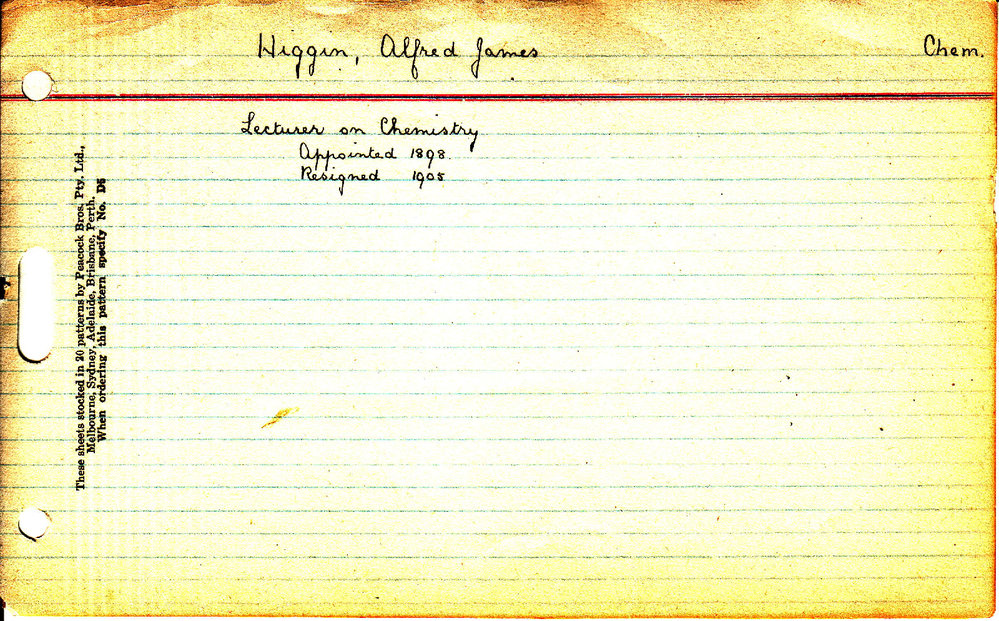 Higgin, Alfred James
Chem.
Lecturer on Chemistry
Appointed 1898.
Resigned 1905
These sheets stocked in 20 patterns by Peacock Bros. Pty. Ltd.,
Melbourne, Sydney, Adelaide, Brisbane, Perth.
When ordering this pattern specify No. D5